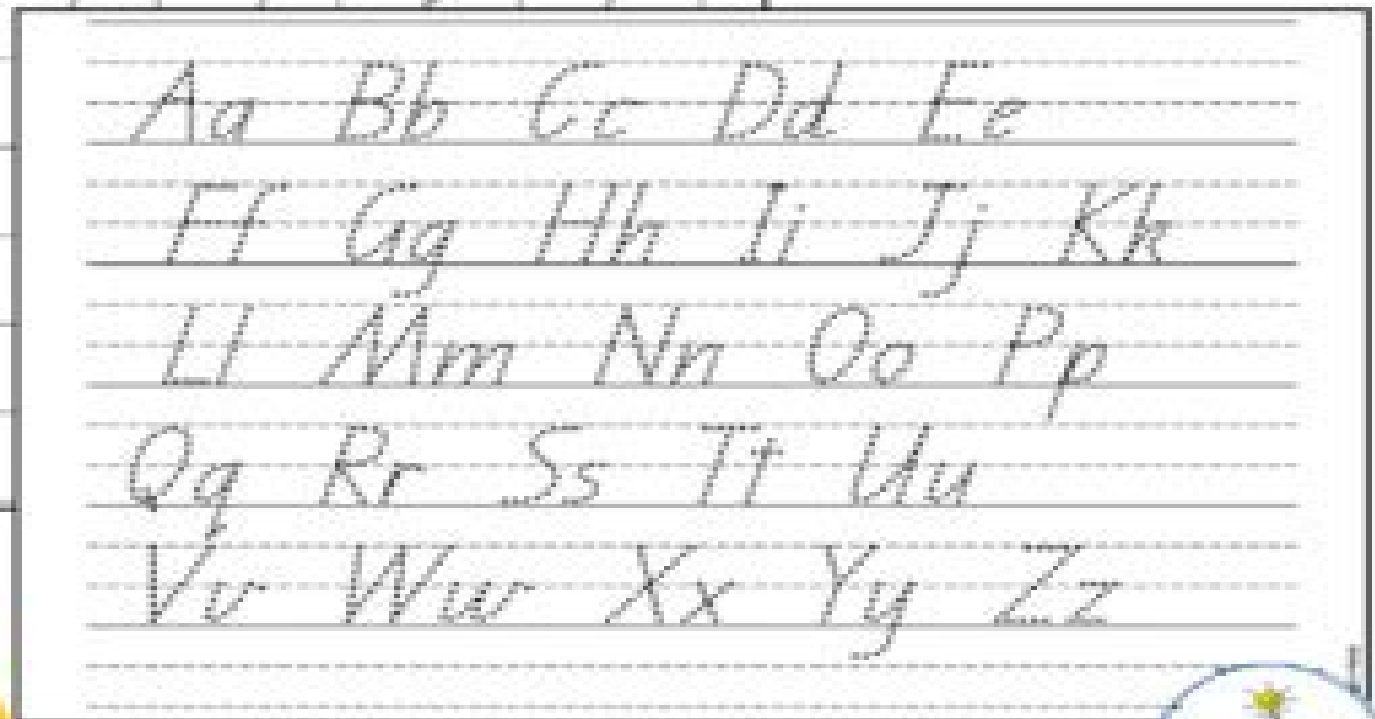 Aa Bb Cc Dd Ee
Ff Gg Hh Ii Jj Kk
Ll Mm Nn Oo Pp
Qq Rr Ss Tt Uu
Vv Ww Xx Yy Zz